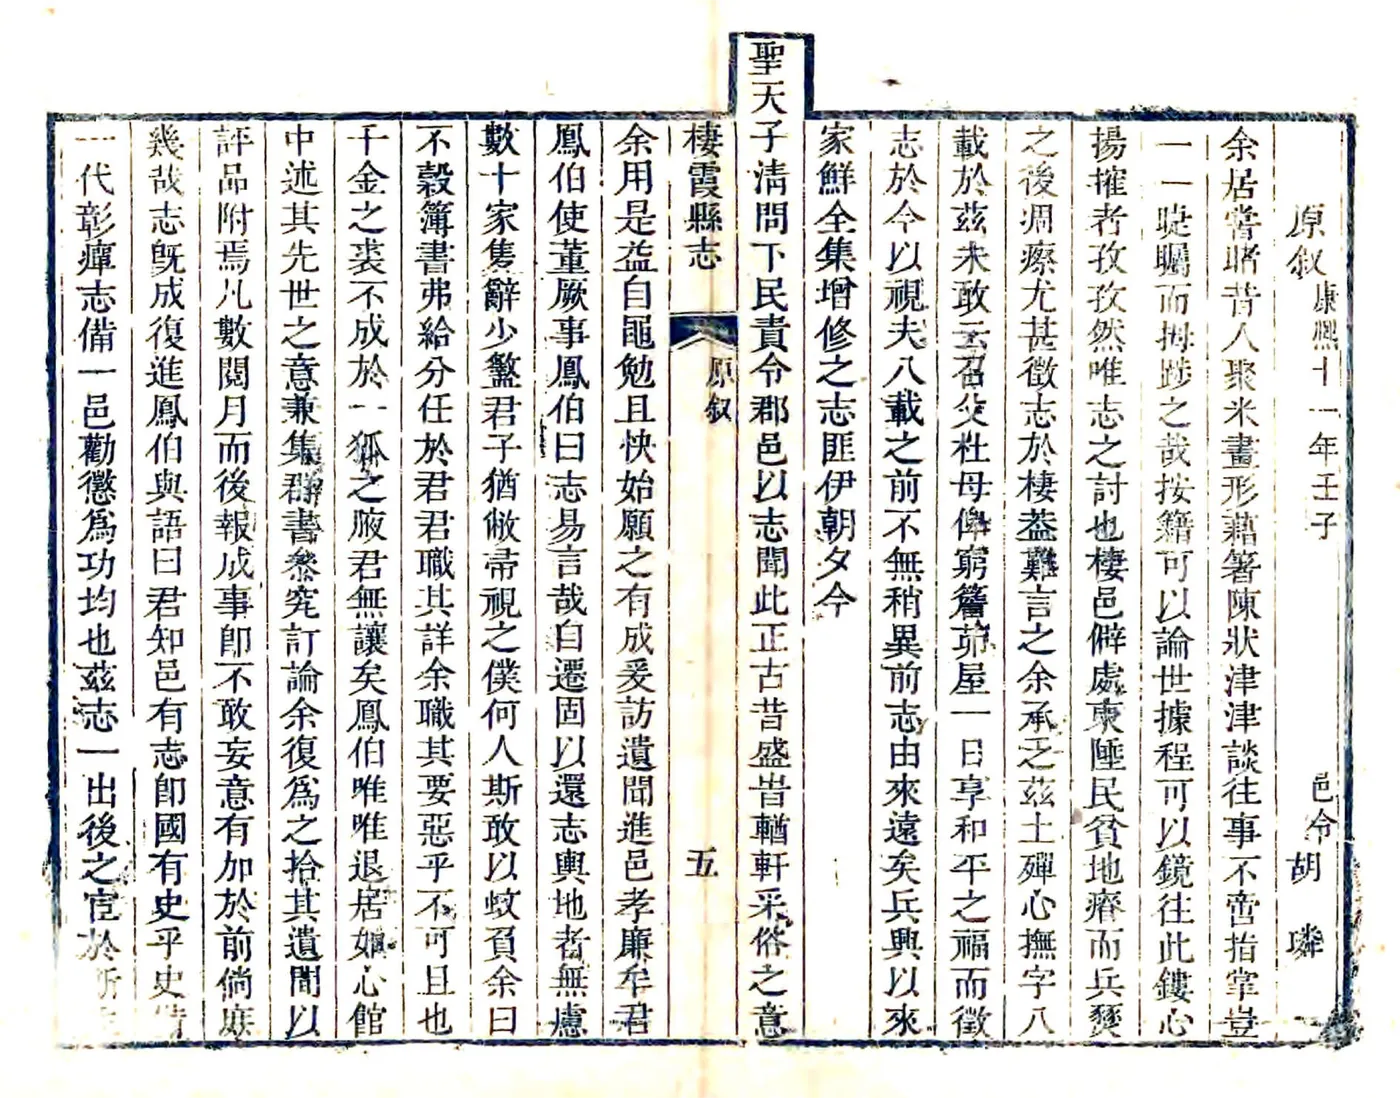 原叙 康熙十一年壬子 邑令 胡璘
余居嘗睹昔人聚米畫形藉箸陳狀津津談往事不啻指掌豈
一一睫矚而拇踄之哉按籍可以論世據程可以鏡往此鏤心
揚搉者孜孜然唯志之討也棲邑僻處東陲民貧地瘠而兵燹
之後凋瘵尤甚徵志於棲葢難言之余承乏茲土殫心撫字八
載於茲未敢云召父杜母俾窮簷茆屋一日享和平之福而徵
志於今以視夫八載之前不無稍異前志由來遠矣兵興以來
家鮮全集增修之志匪伊朝夕今
聖天子清問下民責令郡邑以志聞此正古昔盛時輶軒采俗之意
棲霞縣志 原叙 五
余用是益自黽勉且快始願之有成爰訪遺聞進邑孝廉牟君
鳳伯使董厥事鳳伯曰志易言哉自遷固以還志輿地者無慮
數十家隻辭少盭君子猶敝帚視之僕何人斯敢以蚊負余曰
不穀簿書弗給分任於君君職其詳余職其要惡乎不可且也
千金之裘不成於一狐之腋君無讓矣鳳伯唯唯退居如心館
中述其先世之意兼集群書參究訂論余復爲之拾其遺間以
評品附焉凡數閱月而後報成事卽不敢妄意有加於前倘庶
幾哉志旣成復進鳳伯與語曰君知邑有志卽國有史乎史
一代彰癉志備一邑勸懲爲功均也茲志一出後之宦於